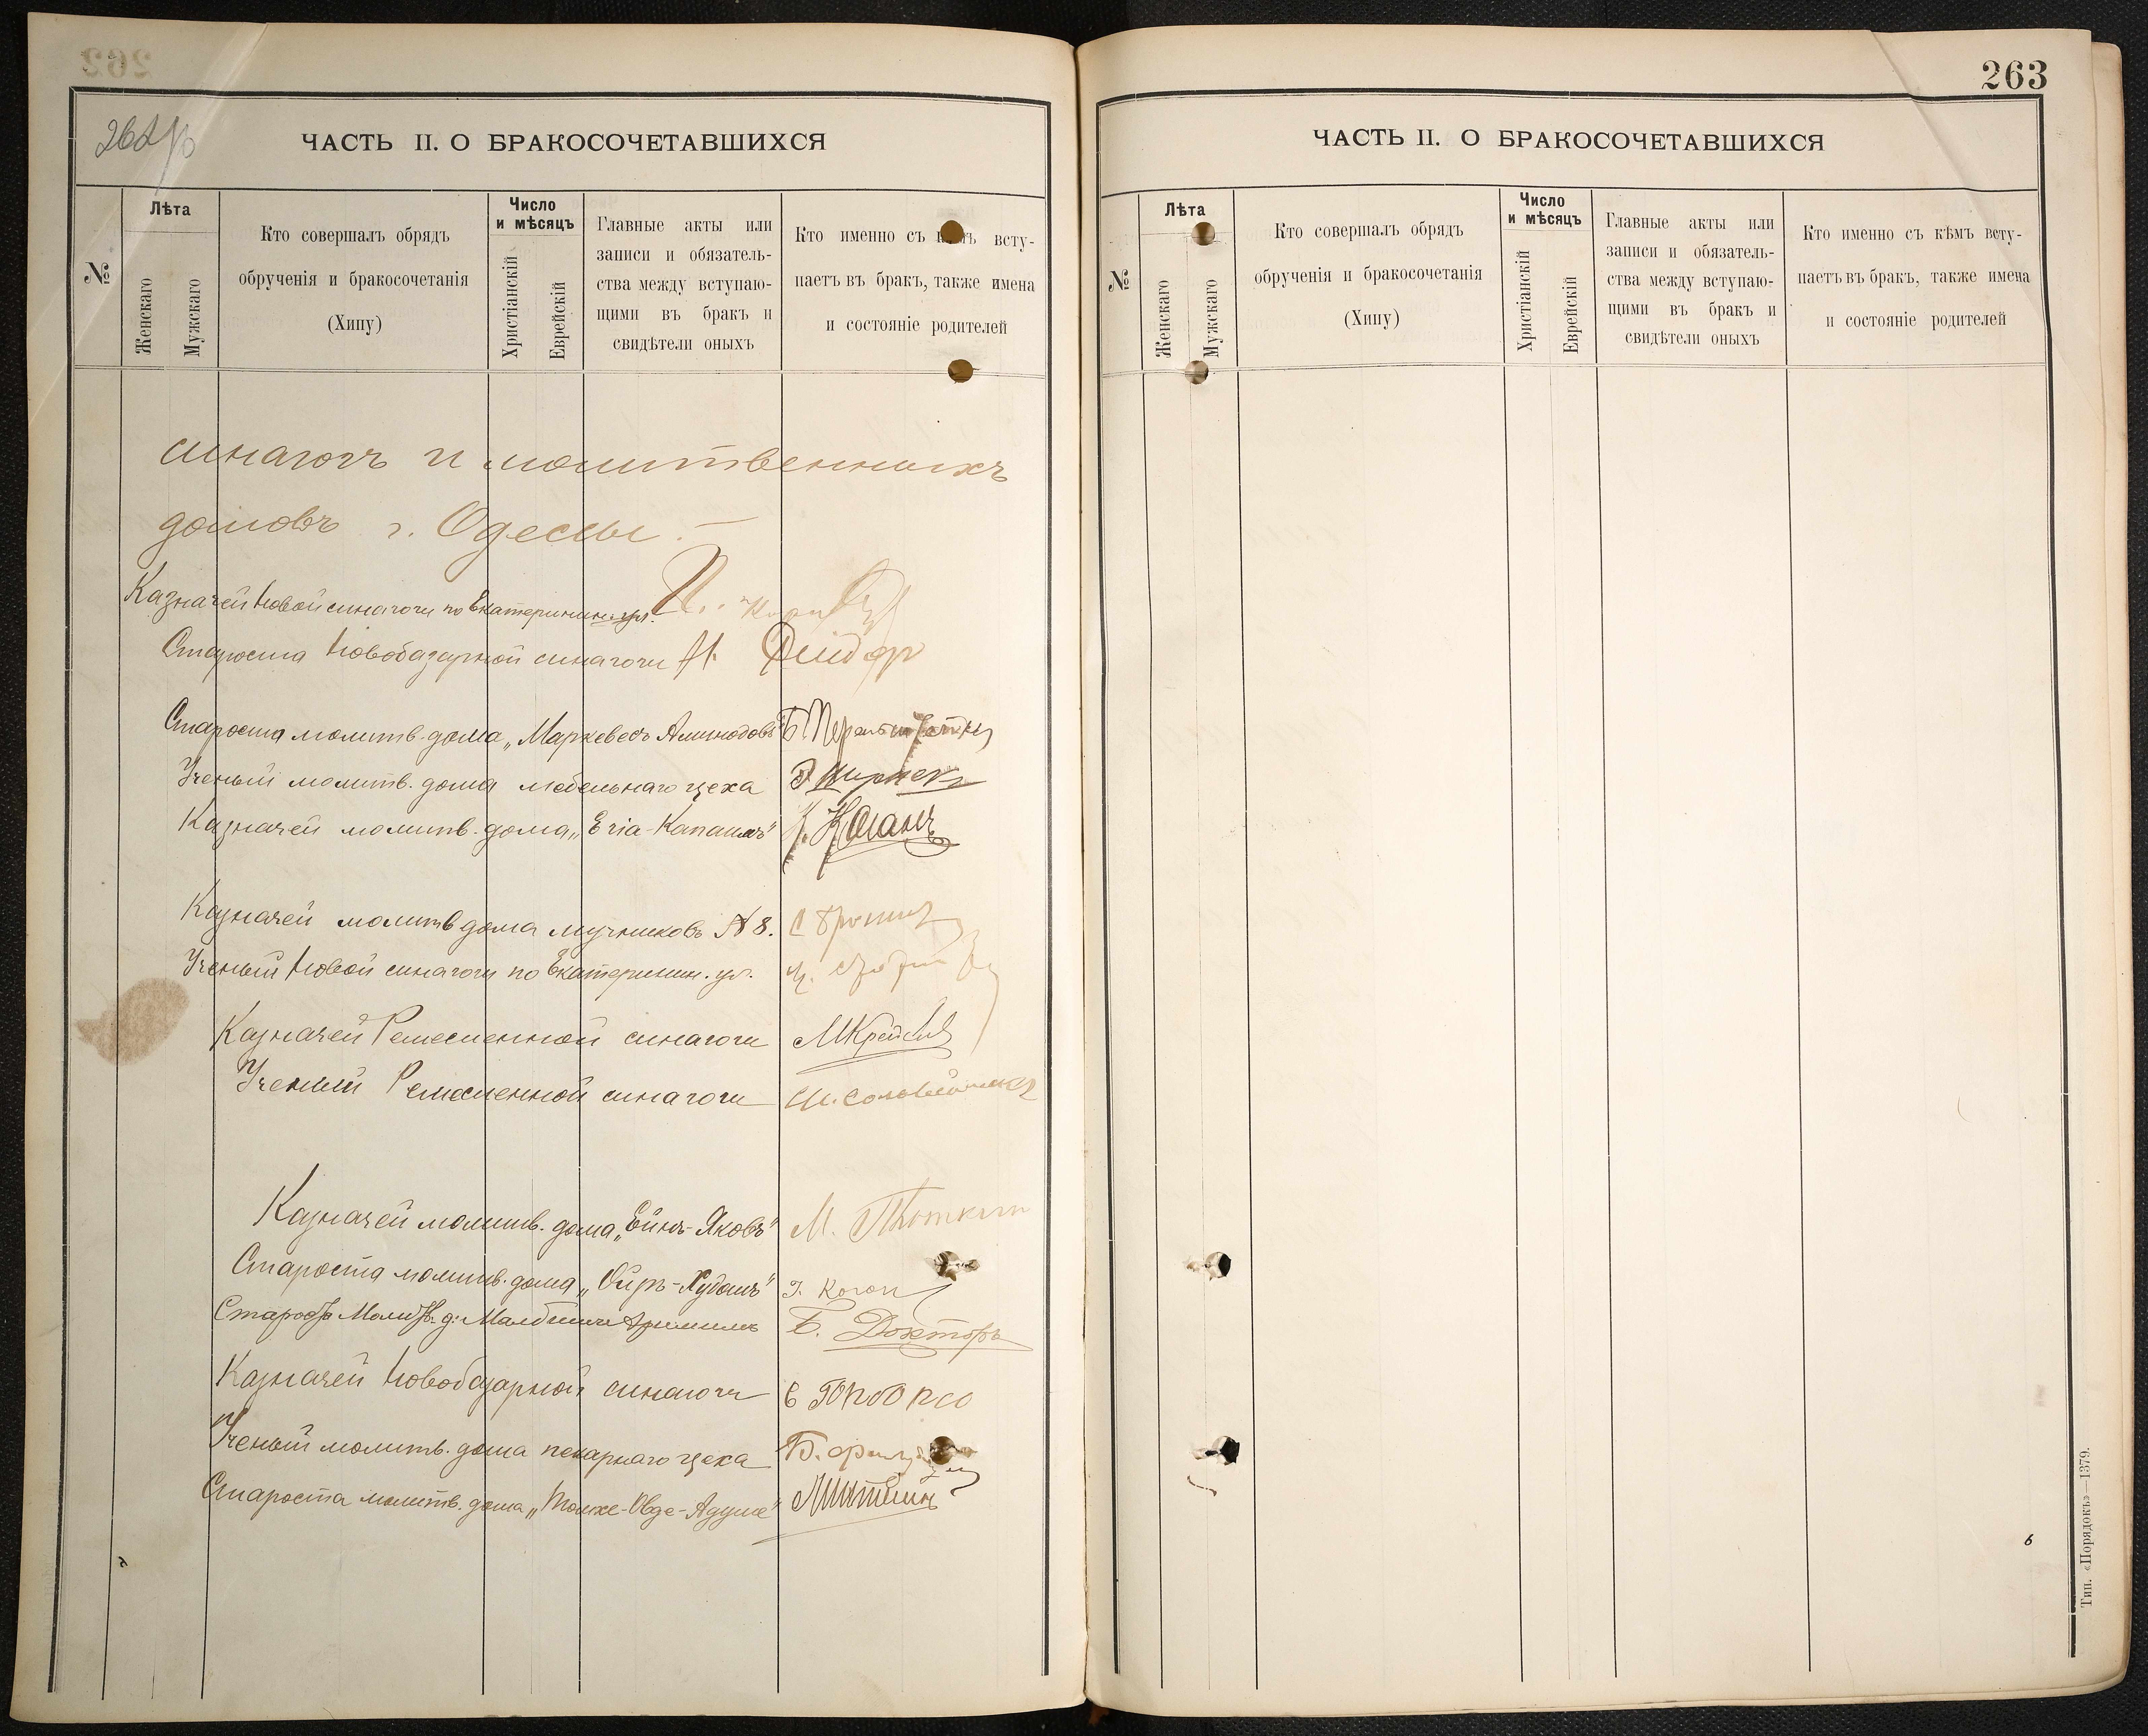 262
ЧАСТЬ II. О БРАКОСОЧЕТАВШИХСЯ
№
Лѣта
Женскаго
Мужскаго
Кто совершалъ обрядъ
обрученія и бракосочетанія
(Хипу)
Число
и мѣсяцъ
Христіанскій
Еврейскій
Главные акты или
записи и обязатель-
ства между вступаю-
щими въ бракъ и
свидѣтели оныхъ
Кто именно съ всту-
паетъ въ бракъ, также имена
и состояніе родителей
синагогъ и молитвенныхъ
домовъ г. Одессы.—
Казначей Новой синагоги по Екатеринин. ул.
Староста Новобазарной синагоги
Староста молитв. дома „Маркевесъ Аминодовъ"
Ученый молитв. дома мебельнаго цеха
Казначей молитв. дома „Егіа-Капаимъ" Коганъ
Казначей молитв дома мучниковъ № 8.
Ученый Новой синагоги по Екатеринин. ул.
Казначей Ремесленной синагоги
Ученый Ремесленной синагоги И. Соловейчикъ
Казначей молитв. дома „Ейнъ-Яковъ" М. Плоткин
Староста молитв. дома „Ойръ-Худошъ" Коган
Б. Докторъ
Казначей Новобазарной синагоги
Ученый молитв. дома пекарнаго цеха
Староста молитв. дома
263
ЧАСТЬ II. О БРАКОСОЧЕТАВШИХСЯ
№
Лѣта
Женскаго
Мужскаго
Кто совершалъ обрядъ
обрученія и бракосочетанія
(Хипу)
Число
и мѣсяцъ
Христіанскій
Еврейскій
Главные акты или
записи и обязатель-
ства между вступаю-
щими въ бракъ и
свидѣтели оныхъ
Кто именно съ кѣмъ всту-
паетъ въ бракъ, также имена
и состояніе родителей
Тип. «Порядокъ»—1379.